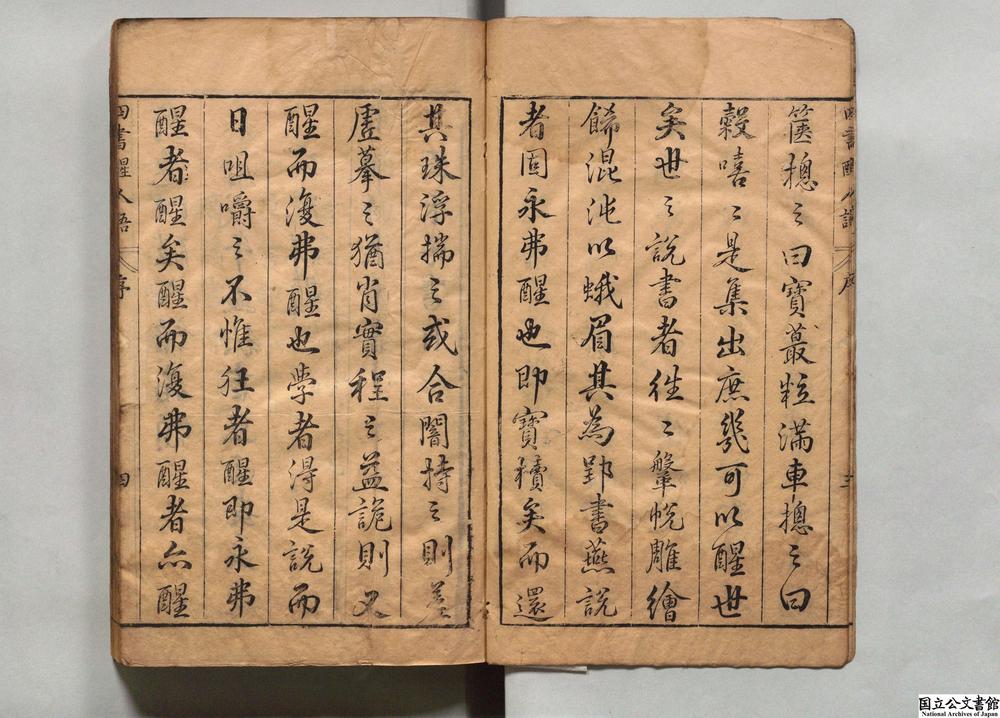 篋摠〻曰寶蕞粒滿車摠〻曰
穀嘻〻是集出庶幾可以醒世
矣世〻說書者徃〻鞶帨雕繪
餙混沌以蛾眉其為郢書燕說
者固永弗醒也即寶櫝矣而還
其珠浮揣〻或合闇持〻則差
虗摹〻猶肖實程〻益詭則又
醒而復弗醒也學者得是說而
日咀嚼〻不惟狂者醒即永弗
醒者醒矣醒而復弗醒者亦醒
四書醒人語
序
四
国立公文書館
National Archives of Japan